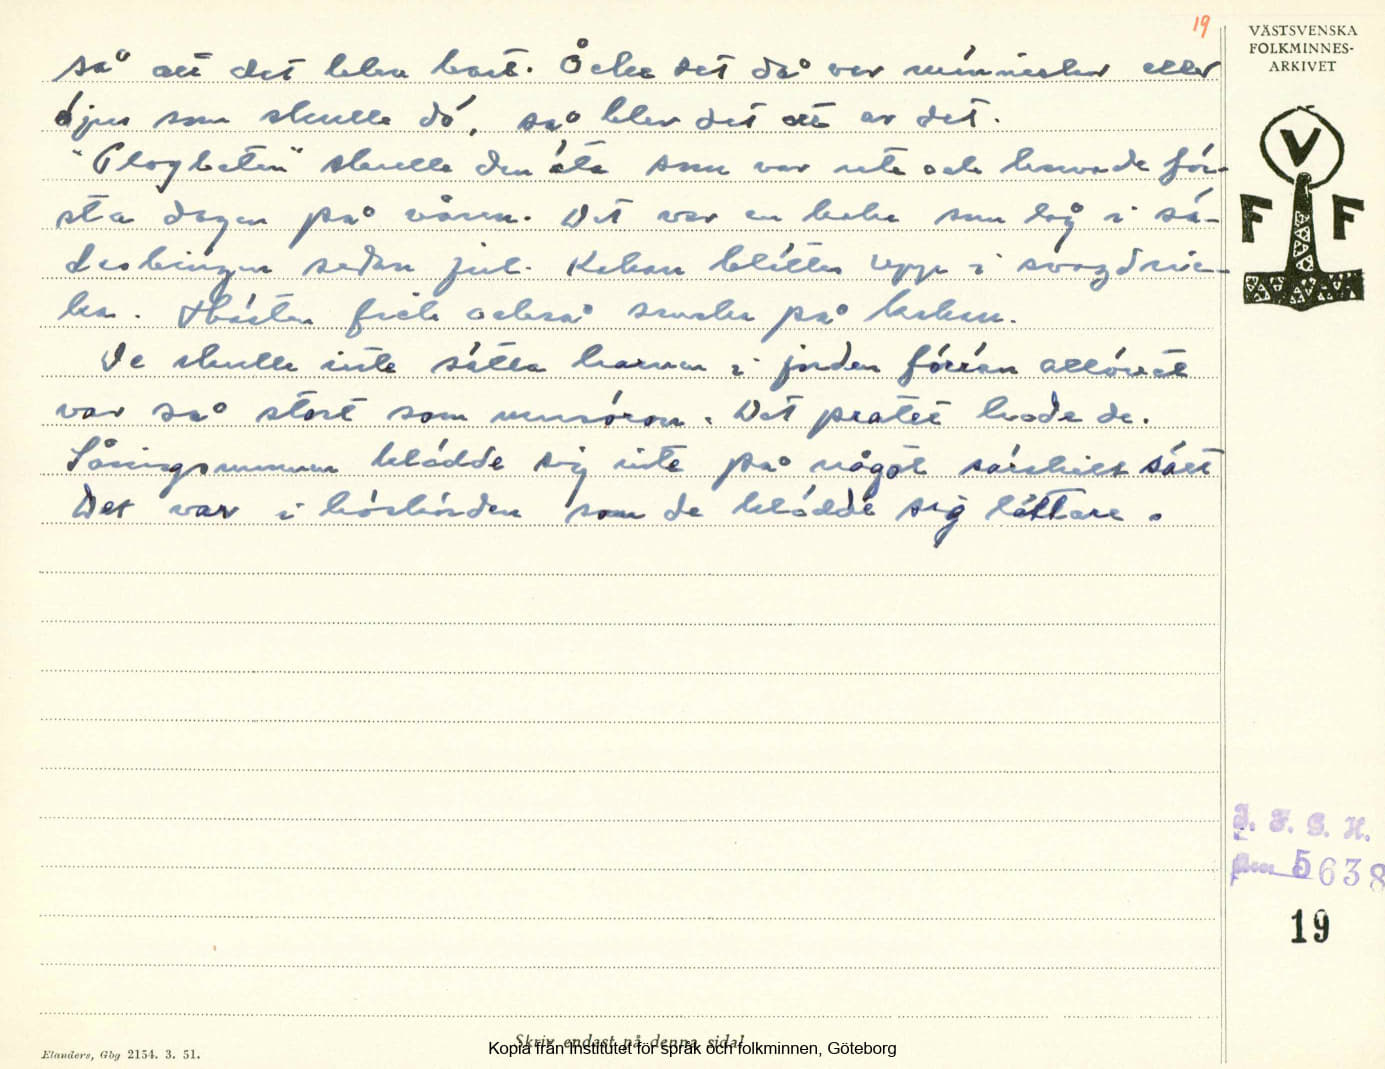 19
VÄSTSVENSKA
FOLKMINNES-
ARKIVET
V
F F
så att det blev bart. Åcke det då var människer eller
djur som skulle dö, så blev det ett av det.
"Plogbeten" skulle den äta som var ute och harvade för-
sta dagen på våren. Det var en kaka som låg i sä-
desbingen sedan jul. Kakan blöttes uppe i svagdric-
ka. Hästen fick också smaka på kakan.
De skulle inte sätta harven i jorden förrän allövet
var så stort som musöron. Det pratet hade de.
Såningsmannen klädde sig inte på något särskilt sätt
Det var i höskörden som de klädde sig lättare.
I. F. G. H.
5638
19
Skriv endast på denna sida!
Elanders, Gbg 2154. 3. 51.
Kopia från Institutet för språk och folkminnen, Göteborg